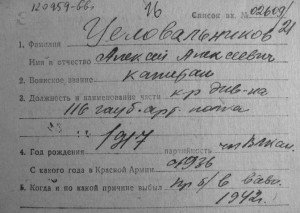 120959-66
16
Список вх. № 02609/21
1. Фамилия Целовальников
Имя и отчество Алексей Алексеевич
2. Воинское звание капитан
3. Должность и наименование части к-р див-на
116 гауб. арт. полка
4. Год рождения 1917 партийность чл. ВЛКСМ
С какого года в Красной Армии с 1936
5. Когда и по какой причине выбыл пр. б/в
1942г.